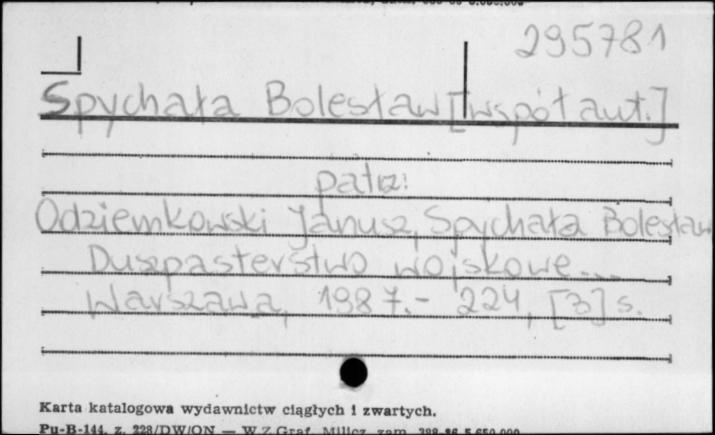 295781
Spychała Bolesław [współaut.]
patrz:
Odziemkowski Janusz, Spychała Bolesław
Duszpasterstwo wojskowe...
Warszawa, 1987.- 224, [3] s.
Karta katalogowa wydawnictw ciągłych i zwartych.
Pu-B-144, z. 228/DW/ON — WZGraf. Milicz, zam.